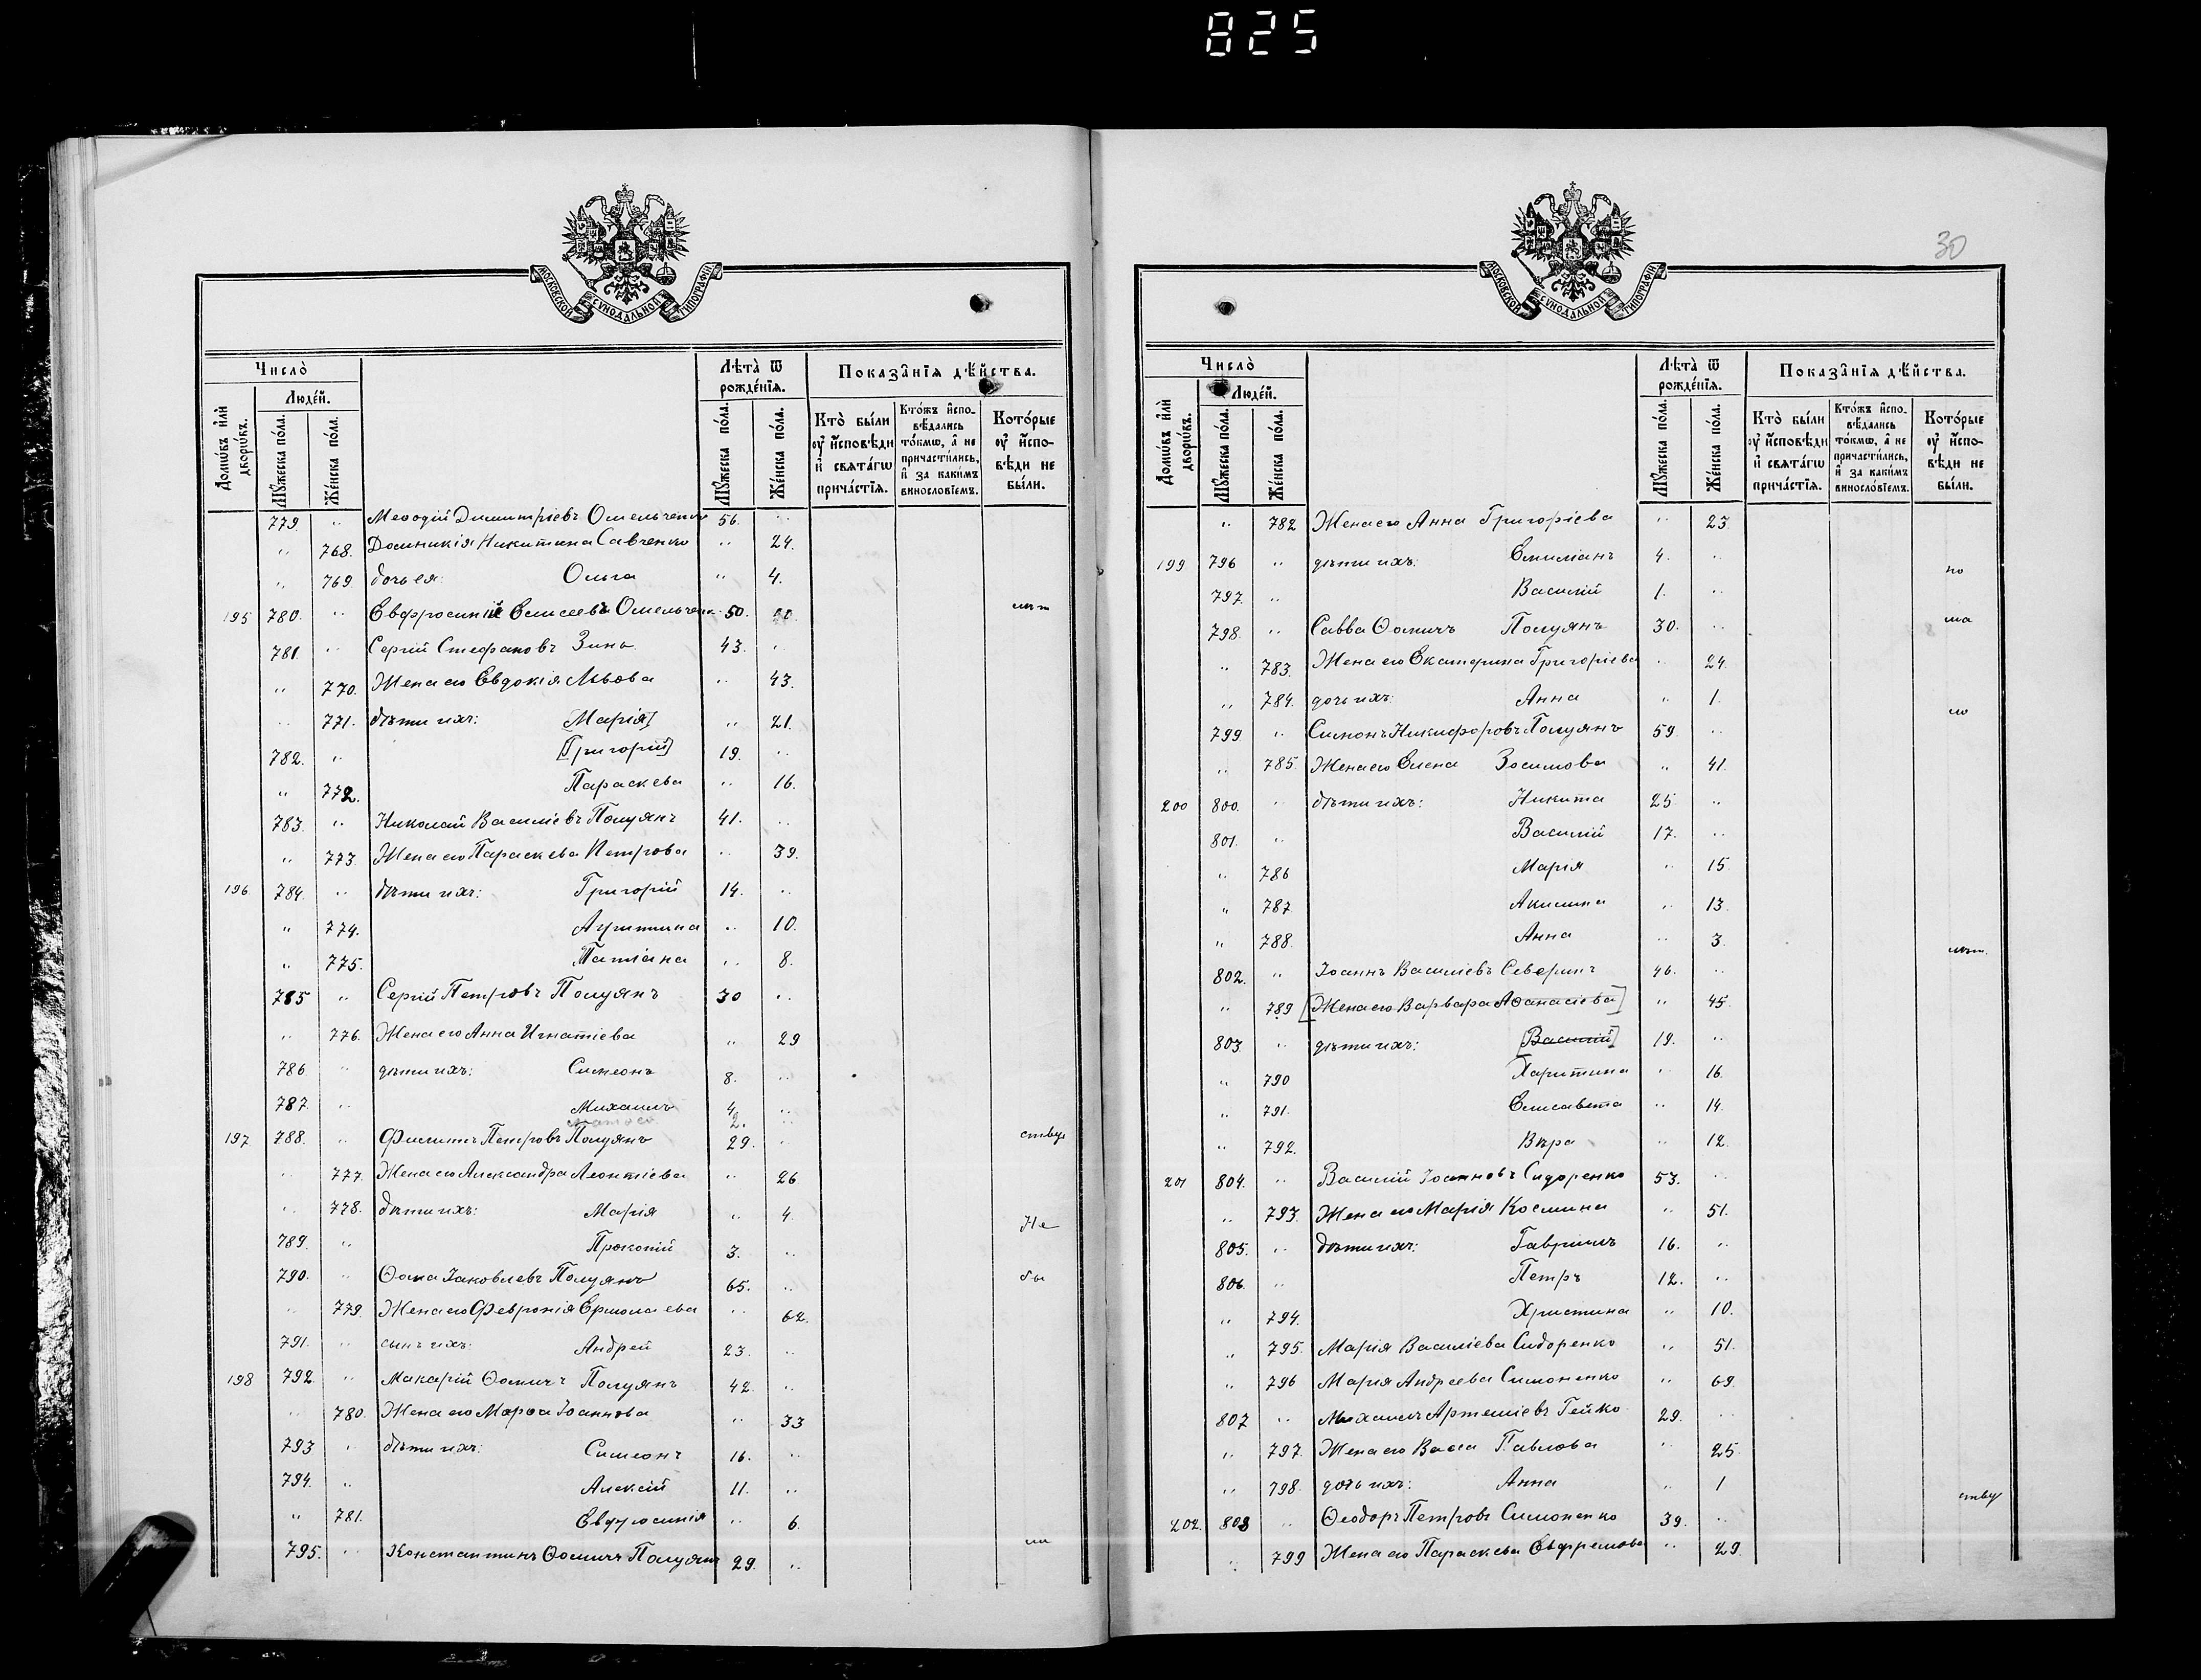 825
МОСКОВСКОЙ СѴНОДАЛЬНОЙ ТИПОГРАФІИ
Число̀
Людéй.
Домѡ́въ и҆лѝ дворѡ́въ.
Мꙋ́жеска по́ла.
Же́нска по́ла.
Лѣ́та ѿ рожде́нїѧ.
Мꙋ́жеска по́ла.
Же́нска по́ла.
Показа̑нїѧ дѣ́йства.
Кто̀ бы́ли ᲂу҆ и҆́сповѣди и҆ свѧта́гѡ прича́стїѧ.
Кто́жъ и҆спо-вѣ́дались то́кмѡ, а҆ не причасти́лись, и҆ за каки́мъ винословїемъ.
Кото́рые ᲂу҆ и҆́спо-вѣди не бы́ли.
779. " Меѳодій Димитріевъ Омельченко 56. "
" 768. Домникія Никитина Савченко " 24.
" 769 дочь ея: Ольга " 4.
195 780. " Евфросиній Елисеевъ Омельченк 50.
781. " Сергій Стефановъ Зинь 43. "
" 770. Жена его Евдокія Львова " 43.
" 771. дѣти ихъ: [Марія] " 21.
782. " [Григорій] 19. "
" 772. Параскева " 16.
783. " Николай Василіевъ Полуянъ 41. "
" 773. Жена его Параскева Петрова " 39.
196 784. " дѣти ихъ: Григорій 14. "
" 774. Агриппина " 10.
" 775. Татіана " 8.
785 " Сергій Петровъ Полуянъ 30 "
" 776. Жена его Анна Игнатіева " 29
786 " дѣти ихъ: Симеонъ 8. "
787. " Михаилъ 4 "
2. "
197 788. " Филиппъ Петровъ Полуянъ 29. " ству
" 777. Жена его Александра Леонтіева " 26
" 778. дѣти ихъ: Марія " 4. Не
789. " Прокопій 3. "
790. " Ѳома Іаковлевъ Полуянъ 65. " бы
" 779. Жена его Февронія Ермолаева " 62.
791. " сынъ ихъ: Андрей 23. "
198 792. " Макарій Ѳомичъ Полуянъ 42. "
" 780. Жена его Марѳа Іоаннова " 33
793 " дѣти ихъ: Симеонъ 16. "
794. " Алексій 11. "
" 781. Евфросинія " 6.
795. " Константинъ Ѳомичъ Полуянъ 29. " ли
30
МОСКОВСКОЙ СѴНОДАЛЬНОЙ ТИПОГРАФІИ
Число̀
Людéй.
Домѡ́въ и҆лѝ дворѡ́въ.
Мꙋ́жеска по́ла.
Же́нска по́ла.
Лѣ́та ѿ рожде́нїѧ.
Мꙋ́жеска по́ла.
Же́нска по́ла.
Показа̑нїѧ дѣ́йства.
Кто̀ бы́ли ᲂу҆ и҆́сповѣди и҆ свѧта́гѡ прича́стїѧ.
Кто́жъ и҆спо-вѣ́дались то́кмѡ, а҆ не причасти́лись, и҆ за каки́мъ винословїемъ.
Кото́рые ᲂу҆ и҆́спо-вѣди не бы́ли.
" 782 Жена его Анна Григоріева " 23.
199 796 " дѣти ихъ: Емиліанъ 4. " по
797. " Василій 1. "
798. " Савва Ѳомичъ Полуянъ 30. "
" 783. Жена его Екатерина Григоріева " 24.
" 784. дочь ихъ: Анна " 1.
799. " Симонъ Никифоровъ Полуянъ 59. "
" 785. Жена его Елена Зосимова " 41.
200 800. " дѣти ихъ: Никита 25. "
801. " Василій 17. "
" 786 Марія " 15.
" 787 Акилина " 13.
" 788. Анна " 3.
802. " Іоаннъ Василіевъ Северинъ 46. "
" 789 [Жена его Варвара Аѳанасіева] " 45.
803. " дѣти ихъ: [Василій] 19. "
" 790 Харитина " 16.
" 791. Елисавета " 14.
" 792. Вѣра " 12.
201 804. " Василій Іоанновъ Сидоренко 53. "
" 793. Жена его Марія Космина " 51.
805. " дѣти ихъ: Гавріилъ 16. "
806. " Петръ 12. "
" 794. Христина " 10.
" 795. Марія Василіева Сидоренко " 51.
" 796 Марія Андреева Симоненко " 69.
807 " Михаилъ Артеміевъ Гейко 29. "
" 797. Жена его Васса Павлова " 25.
" 798. дочь ихъ: Анна " 1
ству
202. 808 " Ѳеодоръ Петровъ Симоненко 39. "
" 799 Жена его Параскева Евфремова " 29.